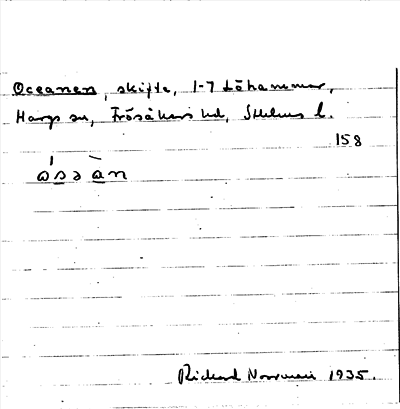 Oceanen, skifte, 1-7 Löhammar,
Hargs sn, Frösåkers hd, Sthlms l.
158
Richard Norrman 1935.